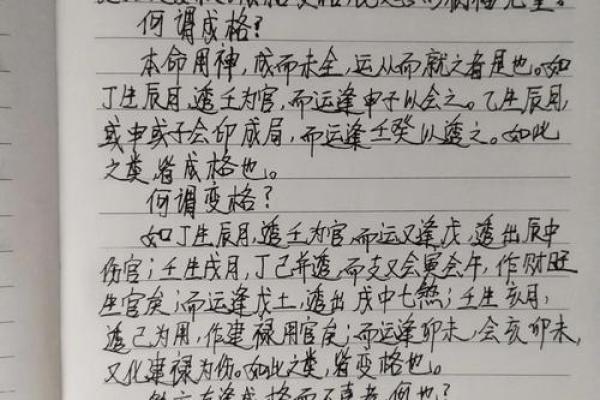 何谓成格？
本命用神，成而未全，运从而就之者是也。如
丁生辰月，透壬为官，而运逢申子以会之。乙生辰月，
或申或子会印成局，而运逢壬癸以透之。如此
之类，皆成格也。
何谓变格？
如丁生辰月，透壬为官，而运又逢戊，透出辰中
伤官；壬生戌月，丁己并透，而支又会寅会午，作财旺
生官矣；而运逢戊土，透出戌中七煞；壬生亥月，
透己为用，作建禄用官矣；而运逢卯未，会亥卯未，
又化建禄为伤。如此之类，皆变格也。
成格而不喜者，何也？